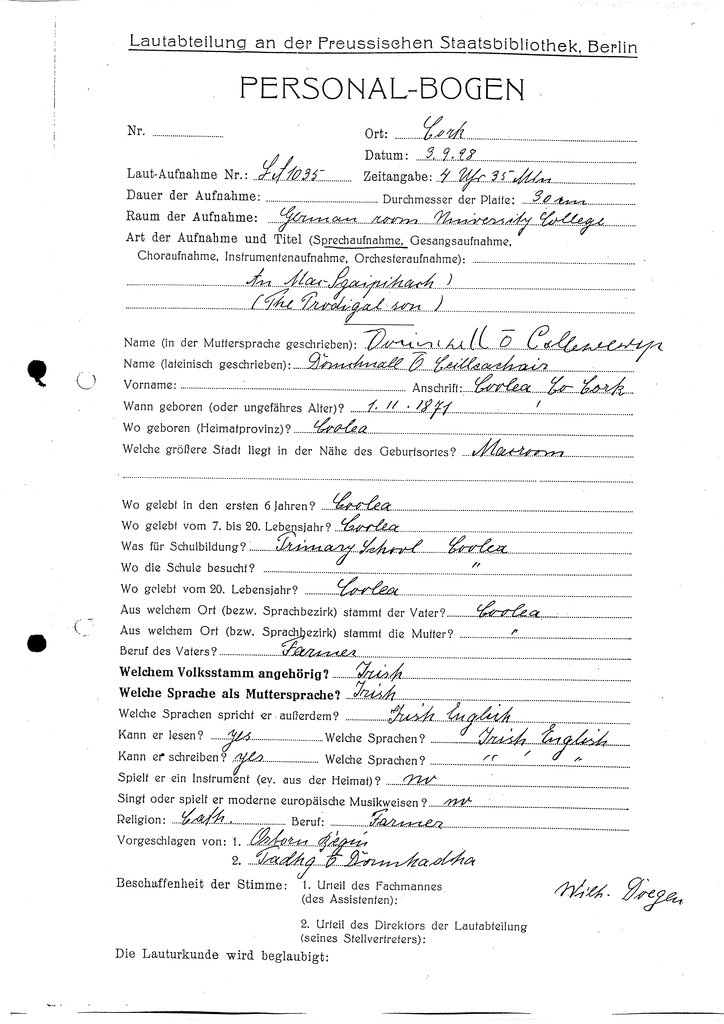 Lautabteilung an der Preussischen Staatsbibliothek, Berlin
PERSONAL-BOGEN
Nr.
Ort: Cork
Datum: 3.9.28
Laut-Aufnahme Nr.: LA 1035 Zeitangabe: 4 Uhr 35 Min
Dauer der Aufnahme: Durchmesser der Platte: 30 cm
Raum der Aufnahme: German room University College
Art der Aufnahme und Titel (Sprechaufnahme, Gesangsaufnahme,
Choraufnahme, Instrumentenaufnahme, Orchesteraufnahme):
An Mac
(The Prodigal son)
Name (in der Muttersprache geschrieben):
Name (lateinisch geschrieben): Domhnall Ó Ceilleachair
Vorname: Anschrift: Coolea Co Cork
Wann geboren (oder ungefähres Alter)? 1.11.1871
Wo geboren (Heimatprovinz)? Coolea
Welche größere Stadt liegt in der Nähe des Geburtsortes? Macroom
Wo gelebt in den ersten 6 Jahren? Coolea
Wo gelebt vom 7. bis 20. Lebensjahr? Coolea
Was für Schulbildung? Primary School Coolea
Wo die Schule besucht? "
Wo gelebt vom 20. Lebensjahr? Coolea
Aus welchem Ort (bezw. Sprachbezirk) stammt der Vater? Coolea
Aus welchem Ort (bzw. Sprachbezirk) stammt die Mutter? "
Beruf des Vaters? Farmer
Welchem Volksstamm angehörig? Irish
Welche Sprache als Muttersprache? Irish
Welche Sprachen spricht er außerdem? Irish English
Kann er lesen? yes Welche Sprachen? Irish English
Kann er schreiben? yes Welche Sprachen? " "
Spielt er ein Instrument (ev. aus der Heimat)? no
Singt oder spielt er moderne europäische Musikweisen? no
Religion: Cath. Beruf: Farmer
Vorgeschlagen von: 1. Osborn Bergin
2. Tadhg Ó Donnchadha
Beschaffenheit der Stimme: 1. Urteil des Fachmannes
(des Assistenten):
Wilh. Doegen
2. Urteil des Direktors der Lautabteilung
(seines Stellvertreters):
Die Lauturkunde wird beglaubigt: